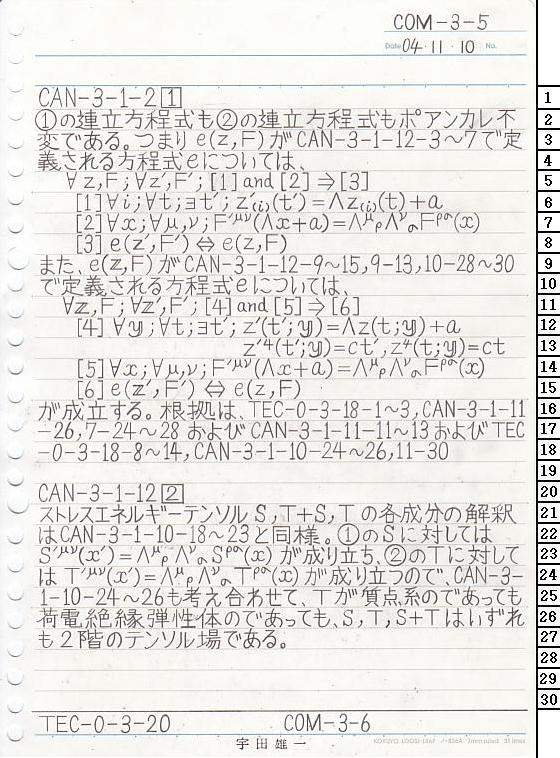 COM-3-5
Date 04・11・10 No.
CAN-3-1-2 1
①の連立方程式も②の連立方程式もポアンカレ不
変である。つまり e(z,F) が CAN-3-1-12-3～7で定
義される方程式eについては、
∀z,F;∀z',F';[1] and [2]⇒[3]
[1]∀i;∀t;∃t';z'₍ᵢ₎(t')=Λz₍ᵢ₎(t)+a
[2]∀x;∀μ,ν;F'^μν(Λx+a)=Λ^μ_ρΛ^ν_σF^ρσ(x)
[3] e(z',F')⇔e(z,F)
また、e(z,F)がCAN-3-1-12-9～15,9-13,10-28～30
で定義される方程式eについては、
∀z,F;∀z',F';[4] and [5]⇒[6]
[4]∀y;∀t;∃t';z'(t';y)=Λz(t;y)+a
z'⁴(t';y)=ct',z⁴(t;y)=ct
[5]∀x;∀μ,ν;F'^μν(Λx+a)=Λ^μ_ρΛ^ν_σF^ρσ(x)
[6] e(z',F')⇔e(z,F)
が成立する。根拠は、TEC-0-3-18-1～3,CAN-3-1-11
-26,7-24～28 および CAN-3-1-11-11～13 および TEC
-0-3-18-8～14,CAN-3-1-10-24～26,11-30
CAN-3-1-12 2
ストレスエネルギーテンソル S,T+S,T の各成分の解釈
はCAN-3-1-10-18～23と同様。①のSに対しては
S'^μν(x')=Λ^μ_ρΛ^ν_σS^ρσ(x) が成り立ち、②のTに対して
は T'^μν(x')=Λ^μ_ρΛ^ν_σT^ρσ(x) が成り立つので、CAN-3-
1-10-24～26も考え合わせて、Tが質点系のであっても
荷電絶縁弾性体のであっても、S,T,S+Tはいずれ
も2階のテンソル場である。
TEC-0-3-20 COM-3-6
宇田雄一
KOKUYO LOOSE-LEAF ノ-836A 7mm ruled 31 lines
1
2
3
4
5
6
7
8
9
10
11
12
13
14
15
16
17
18
19
20
21
22
23
24
25
26
27
28
29
30